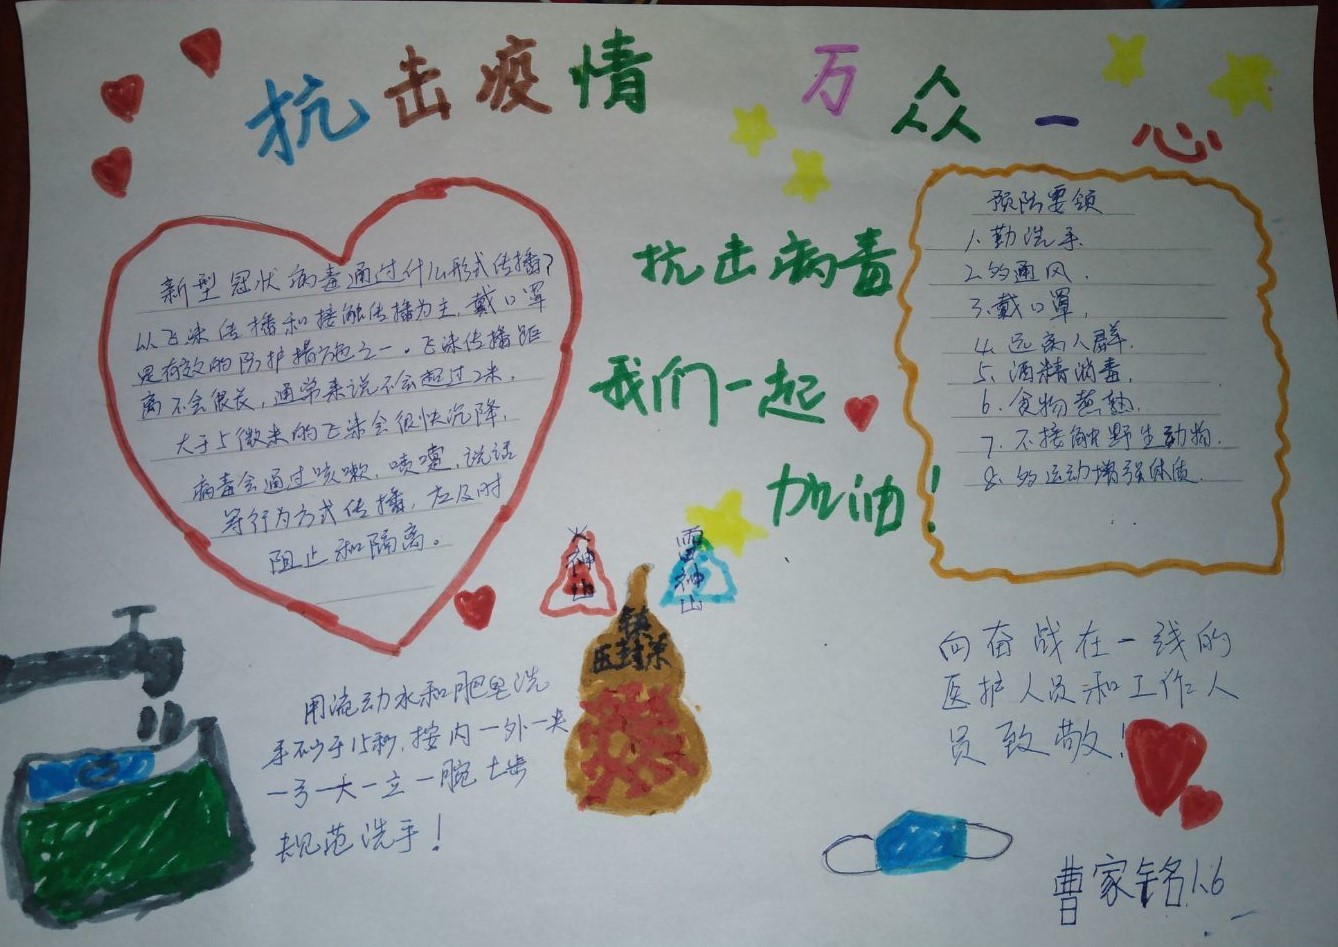 抗击疫情 万众一心
新型冠状病毒通过什么形式传播?
以飞沫传播和接触传播为主.戴口罩
是有效的防护措施之一.飞沫传播距
离不会很长,通常来说不会超过2米.
大于5微米的飞沫会很快沉降.
病毒会通过咳嗽.喷嚏.说话
等行为方式传播,应及时
阻止和隔离。
抗击病毒
我们一起
加油!
预防要领
1.勤洗手.
2.多通风.
3.戴口罩,
4.远离人群.
5.酒精消毒.
6.食物煮熟.
7.不接触野生动物.
8.多运动增强体质.
火神山
雷神山
用流动水和肥皂洗
手不少于15秒,按内一外一夹
一弓一大一立一腕七步
规范洗手!
向奋战在一线的
医护人员和工作人
员致敬!
曹家铭1.6